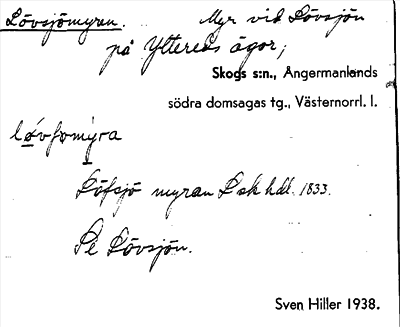 Lövsjömyran. Myr vid Lövsjön
på Yttereds ägor;
Skogs s:n., Ångermanlands
södra domsagas tg., Västernorrl. l.
Löfsjö myran Lsk hdl. 1833.
Se Lövsjön.
Sven Hiller 1938.